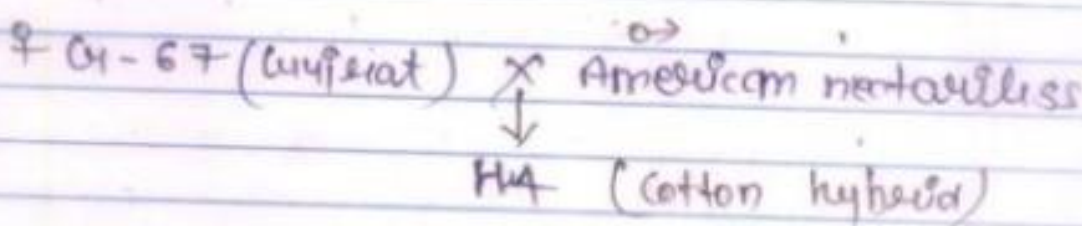 ♀ G-67 (Gujrat) × ♂ American nectariless
↓
H4 (Cotton hybrid)